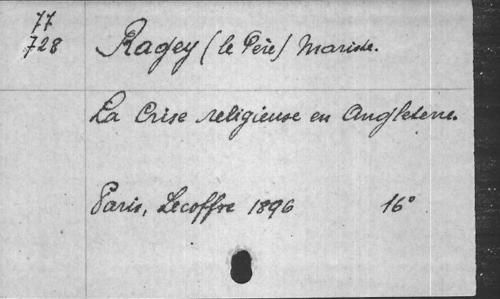 77
728
Ragey (le Père) Mariste.
La Crise religieuse en Angleterre.
Paris, Lecoffre 1896 16°